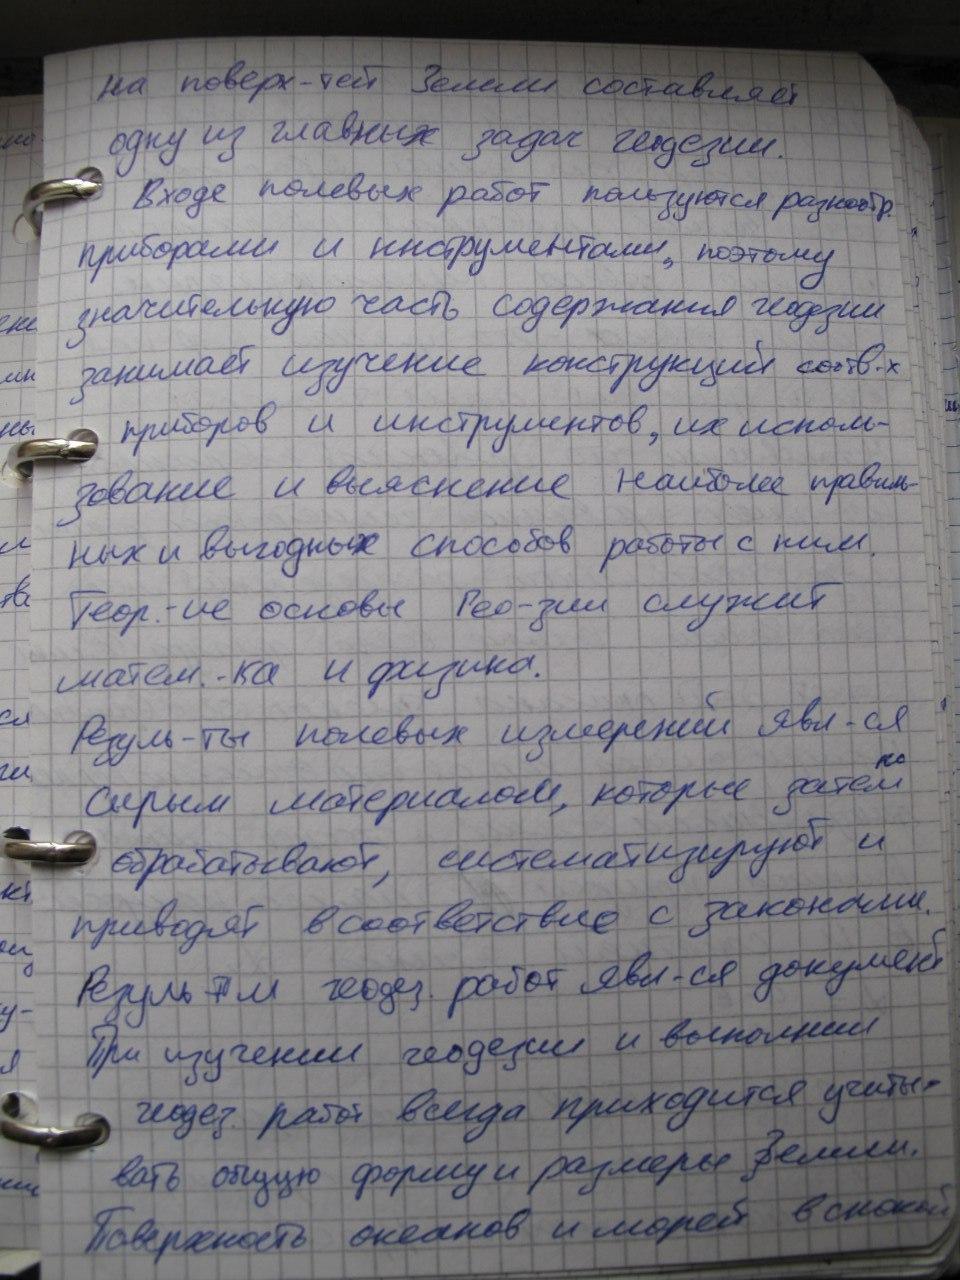 на поверх-тей Земли составляет
одну из главных задач геодезии.
Входе полевых работ пользуются разнообр.
приборами и инструментами, поэтому
значительную часть содержания геодезии
занимает изучение конструкций соотв-х
приборов и инструментов, их исполь-
зование и выяснение наиболее правиль-
ных и выгодных способов работы с ним.
Теор.-ие основы Гео-зии служит
матем.-ка и физика.
Резуль-ты полевых измерений явл-ся
сырым материалом, которые затем по
обрабатывают, систематизируют и
приводят в соответствие с законами.
Резуль-м геодез. работ явл-ся документ
При изучении геодезии и выполнии
геодез. работ всегда приходится учиты-
вать общую форму и размеры Земли.
Поверхность океанов и морей в спокой